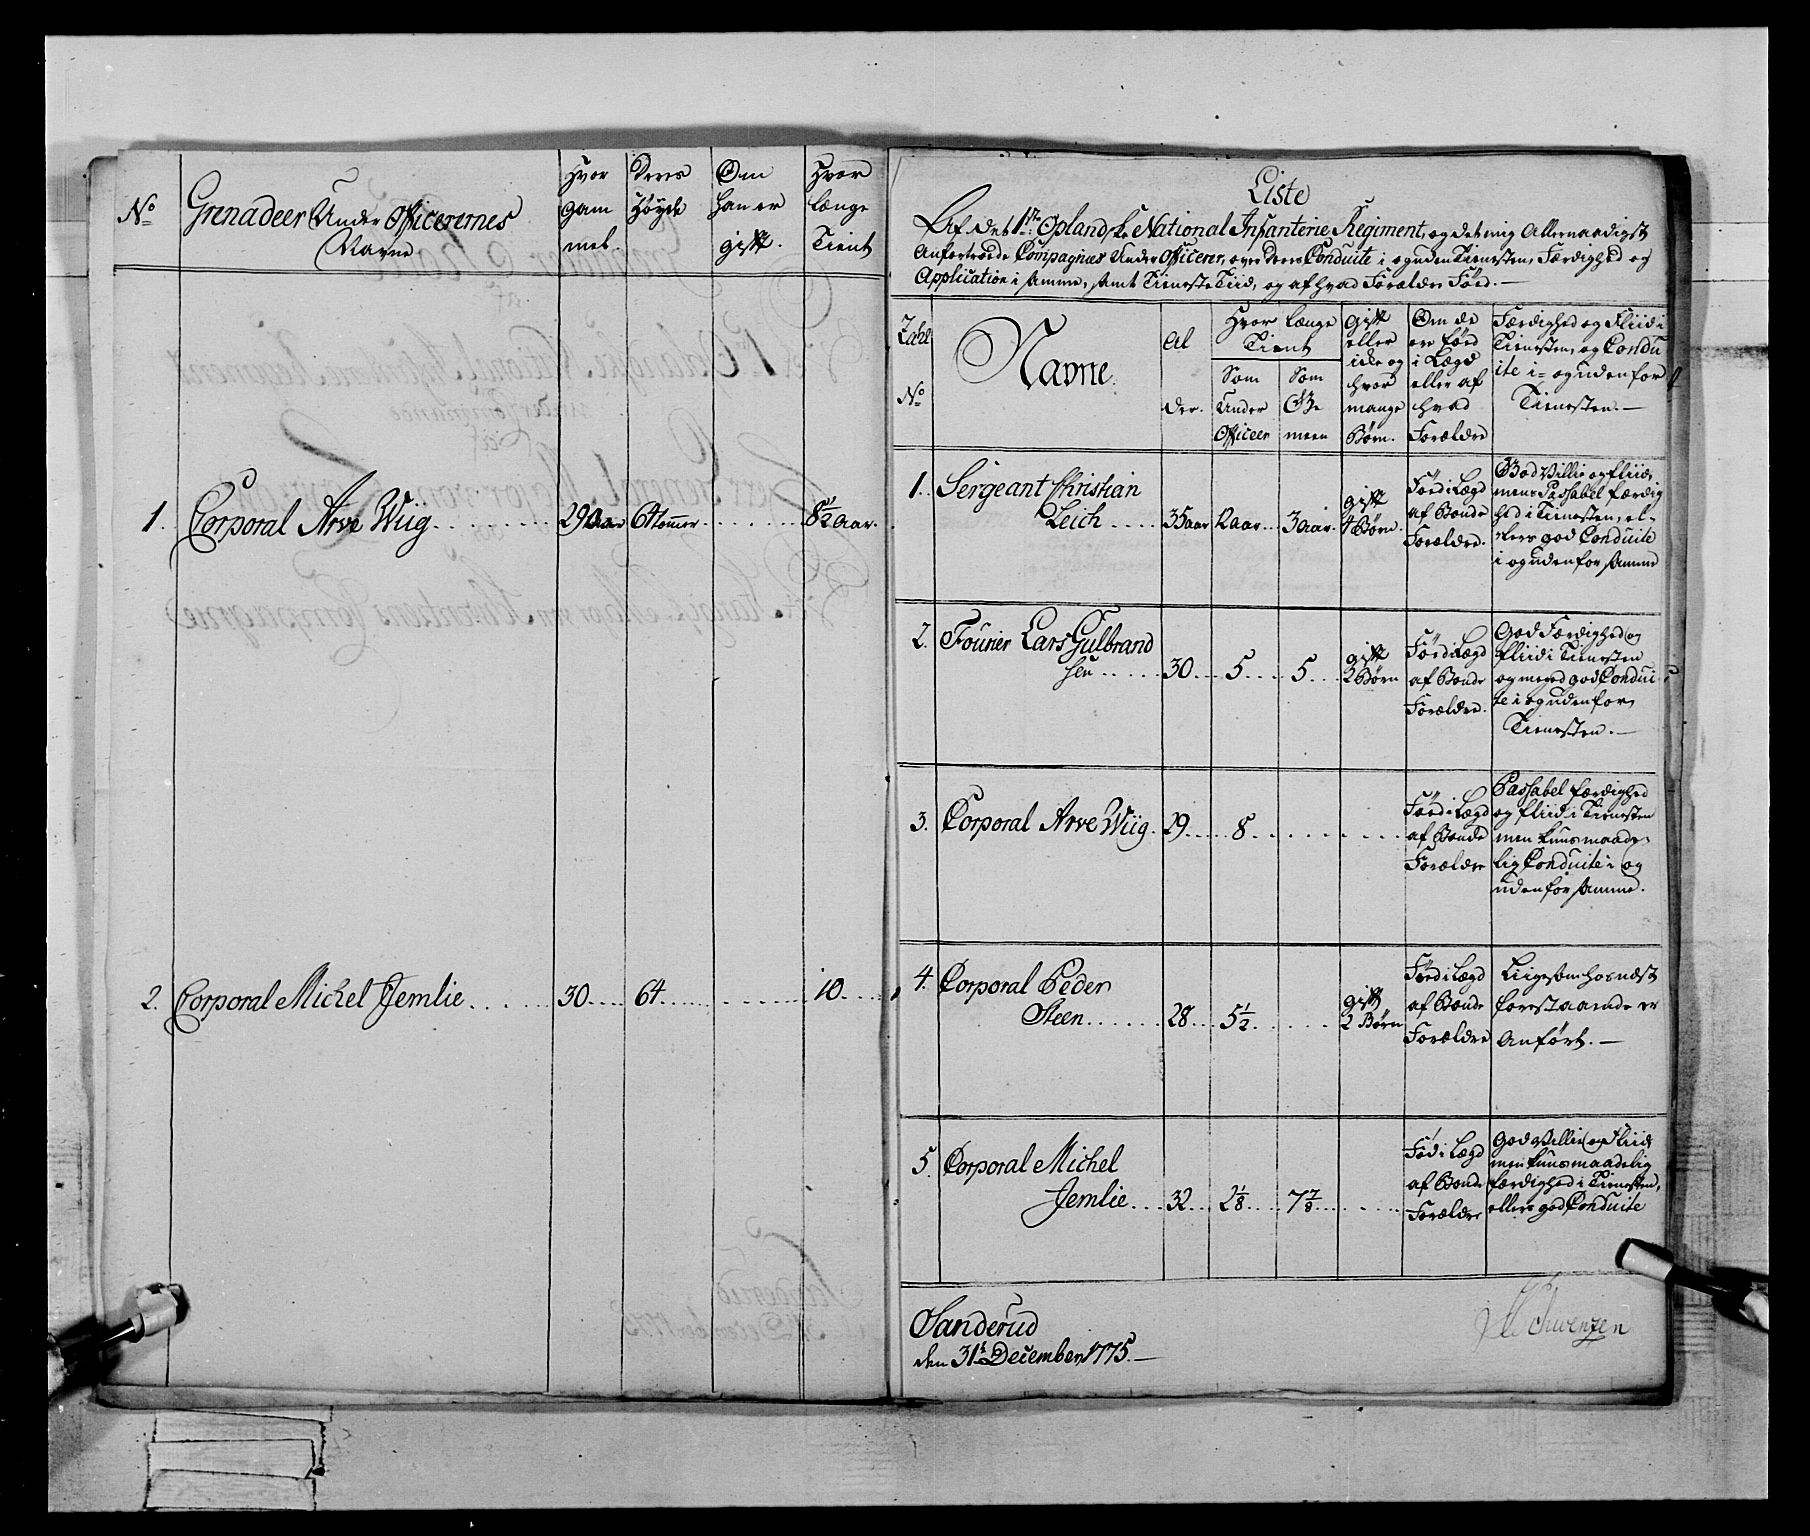 No
Grenadeer Under Officerernes
Navne
Hvor
gam
mel.
Deres
Høyde
Om
han er
gift.
Hvor
længe
Tient
1. Corporal Arve Wiig 29 aar 64 tommer 8½ aar.
2. Corporal Michel Jemlie 30 64 10
Liste
Af det 1ste Oplandske National Infanterie Regiment, og det mig Allernaadigst
Anfortroede Compagnies Under Officerer, over deres Conduite i og uden Tienesten, Færdighed og
Application i samme, samt Tieneste Tiid, og af hvad Forældre Fød.
Zahl
No
Navne.
Al
der.
Hvor længe
Tient
Som
Under
Officeer
Som
Ge
meen
Gift
eller
ikke og
hvor
mange
Børn.
Om de
er fød
i Lægd
eller af
hvad
Forældre
Færdighed og Fliid i
Tienesten, og Condu
ite i- og udenfor
Tienesten.
1. Sergeant Christian
Leich 35 aar 12 aar 3 aar
gift
4 Børn
Fød i Lægd
af Bonde
Forældre.
God Villie og fliid,
men Passabel færdig
hed i Tienesten, el-
lers god Conduite
i og udenfor samme
2. Fourier Lars Gulbrand
sen 30 5 5
gift
2 Børn
Fød i Lægd
af Bonde
Forældre.
God Færdighed og
fliid i Tienesten
og meged god Condui
te i og udenfor
Tienesten.
3. Corporal Arve Wiig. 29 8
Fød i Lægd
af Bonde
Forældre
Passabel færdighed
og fliid i Tienesten
men kuns maade-
lig Conduite i og
udenfor samme.
4. Corporal Peder
Steen 28 5½
gift
2 Børn
Fød i Lægd
af Bonde
Forældre
Liigesom hos næst
forestaaende er
Anført.
5. Corporal Michel
Jemlie 32 2⅛ 7⅞
Fød i Lægd
af Bonde
Forældre
God Villie og Fliid
men kuns maadelig
færdighed i Tienesten,
ellers god Conduite
Sanderud
den 31t December 1775.